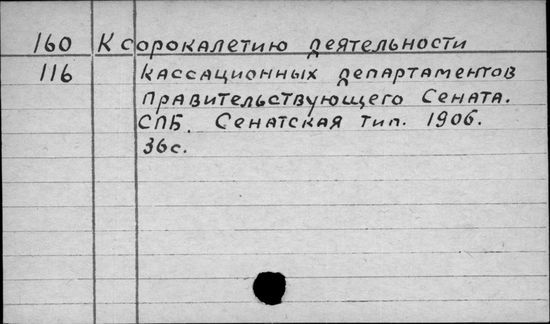 160 К сорокалетию деятельности
116 кассационных департаментов
Правительствующего Сената.
СПБ. Сенатская тип. 1906.
36с.